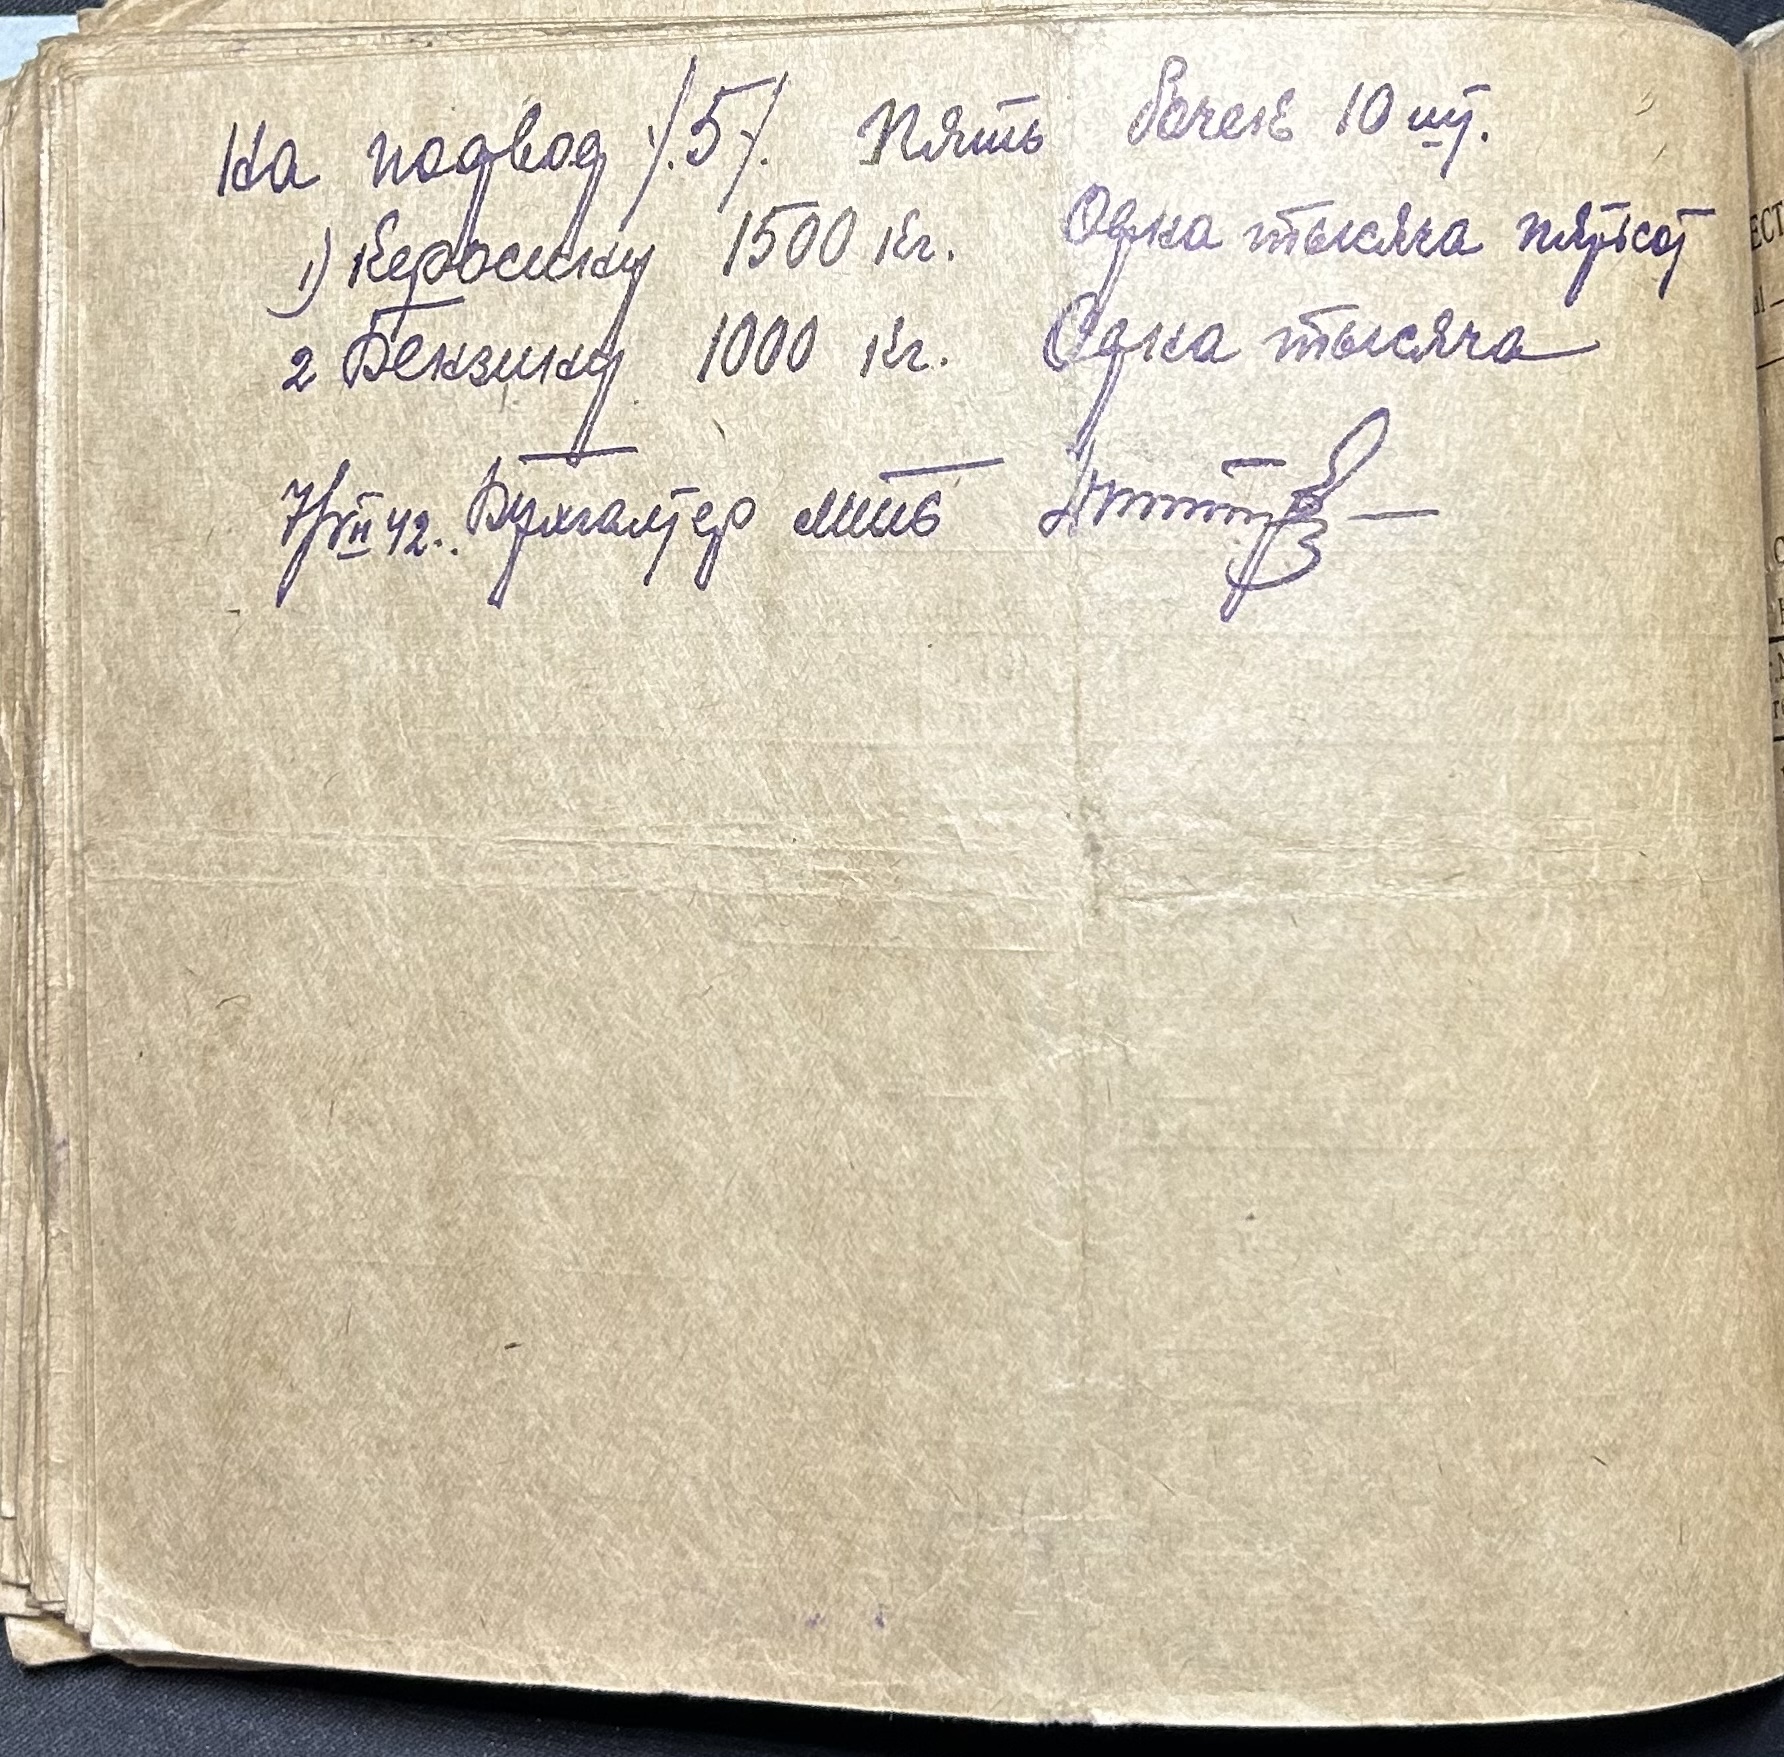 На подвод /.5/. Пять бочек 10 шт.
1) Керосину 1500 кг. Одна тысяча пятьсот
2 Бензину 1000 кг. Одна тысяча
7/VII 42. Бухгалтер